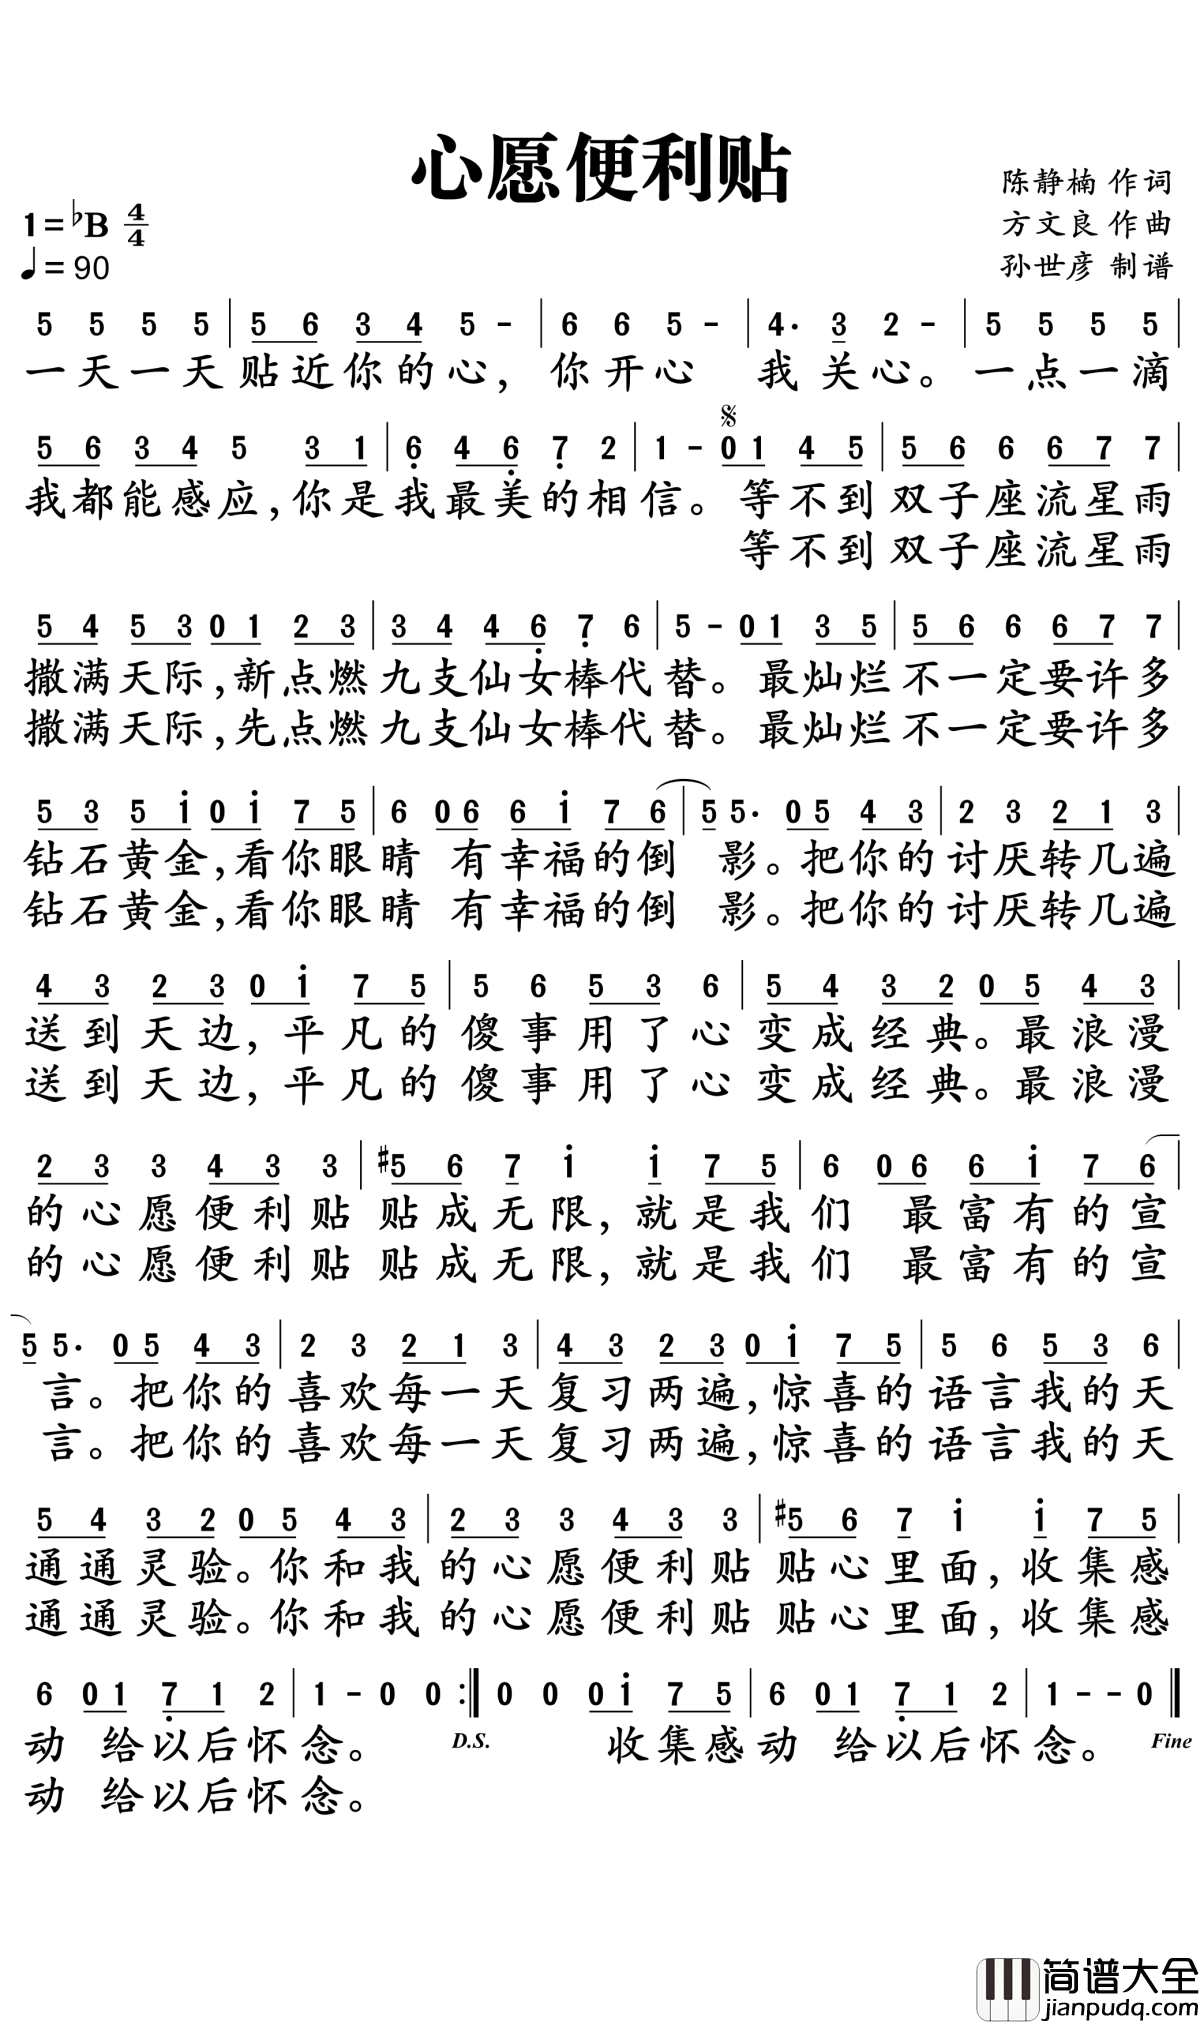 心愿便利贴
陈静楠 作词
1=♭B 4/4
方文良 作曲
♩=90
孙世彦 制谱
5 5 5 5 | 5 6 3 4 5 - | 6 6 5 - | 4· 3 2 - | 5 5 5 5 |
一天一天 贴近你的心, 你开心 我关心。一点一滴
5 6 3 4 5 3 1 | 6̣ 4 6̣ 7̣ 2 | 1 - 𝄋 0 1 4 5 | 5 6 6 6 7 7 |
我都能感应,你是我最美的相信。等不到双子座流星雨
等不到双子座流星雨
5 4 5 3 0 1 2 3 | 3 4 4 6̣ 7̣ 6 | 5 - 0 1 3 5 | 5 6 6 6 7 7 |
撒满天际,新点燃九支仙女棒代替。最灿烂不一定要许多
撒满天际,先点燃九支仙女棒代替。最灿烂不一定要许多
5 3 5 1̇ 0 1̇ 7 5 | 6 0 6 6 1̇ 7 6 | 5 5· 0 5 4 3 | 2 3 2 1 3 |
钻石黄金,看你眼睛 有幸福的倒 影。把你的讨厌转几遍
钻石黄金,看你眼睛 有幸福的倒 影。把你的讨厌转几遍
4 3 2 3 0 1̇ 7 5 | 5 6 5 3 6 | 5 4 3 2 0 5 4 3 |
送到天边,平凡的傻事用了心变成经典。最浪漫
送到天边,平凡的傻事用了心变成经典。最浪漫
2 3 3 4 3 3 | #5 6 7 1̇ 1̇ 7 5 | 6 0 6 6 1̇ 7 6 |
的心愿便利贴 贴成无限,就是我们 最富有的宣
的心愿便利贴 贴成无限,就是我们 最富有的宣
5 5· 0 5 4 3 | 2 3 2 1 3 | 4 3 2 3 0 1̇ 7 5 | 5 6 5 3 6 |
言。把你的喜欢每一天复习两遍,惊喜的语言我的天
言。把你的喜欢每一天复习两遍,惊喜的语言我的天
5 4 3 2 0 5 4 3 | 2 3 3 4 3 3 | #5 6 7 1̇ 1̇ 7 5 |
通通灵验。你和我的心愿便利贴 贴心里面,收集感
通通灵验。你和我的心愿便利贴 贴心里面,收集感
6 0 1 7̣ 1 2 | 1 - 0 0 :‖ 0 0 0 1̇ 7 5 | 6 0 1 7̣ 1 2 | 1 - - 0 ‖
动 给以后怀念。 D.S. 收集感动 给以后怀念。 Fine
动 给以后怀念。
简谱大全
jianpudq.com